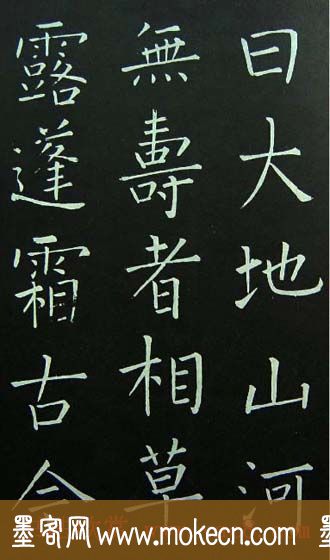 曰大地山河
無壽者相草
露蓬霜古今
墨客网 www.mokecn.com 墨客网